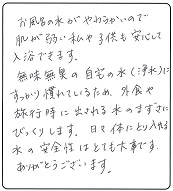 お風呂の水がやわらかいので
肌が弱い私や子供も安心して
入浴できます。
無味無臭の自宅の水(浄水)に
すっかり慣れているため、外食や
旅行時に出される水のまずさに
びっくりします。日々体にとり入れる
水の安全性はとても大事です。
ありがとうございます。